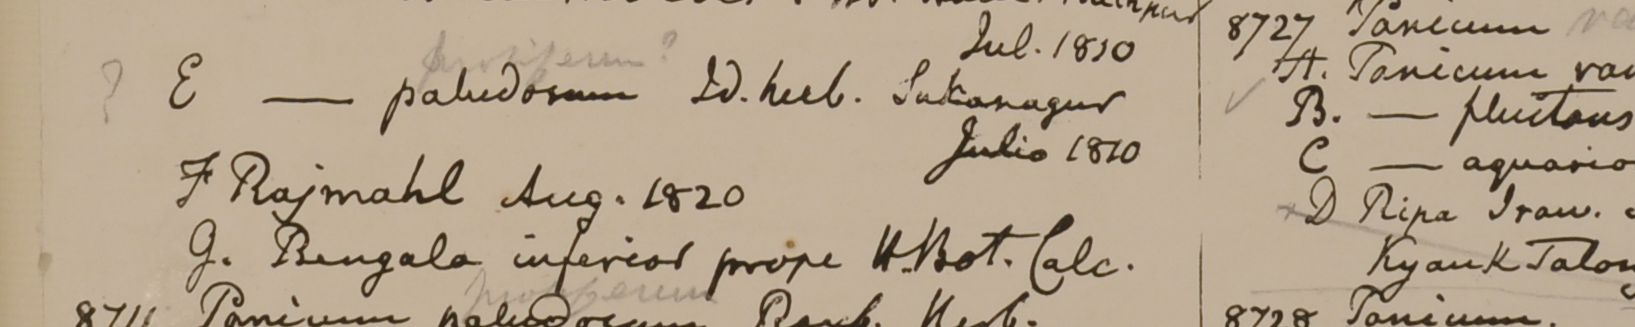 Jul. 1810
proliferum?
? E — paludosum Id. herb. Sukanagur
Julio 1810
F Rajmahl Aug. 1820
G. Bengala inferior prope H. Bot. Calc.
8711 Panicum paludosum Roxb. Herb.
8727 Panicum
A. Panicum
B. — fluitans
C —
D Ripa Iraw.
Kyauk Talon
8728 Panicum.